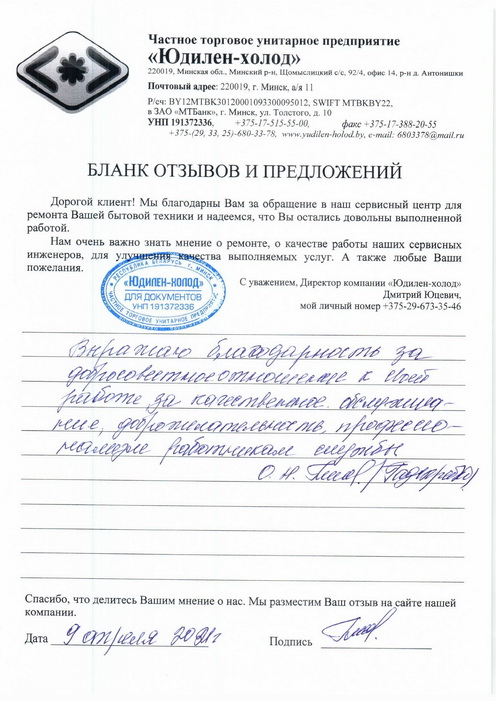 Частное торговое унитарное предприятие
«Юдилен-холод»
220019, Минская обл., Минский р-н, Щомыслицкий с/с, 92/4, офис 14, р-н д. Антонишки
Почтовый адрес: 220019, г. Минск, а/я 11
Р/сч: BY12MTBK30120001093300095012, SWIFT MTBKBY22,
в ЗАО «МТБанк», г. Минск, ул. Толстого, д. 10
УНП 191372336, +375-17-515-55-00, факс +375-17-388-20-55
+375-(29, 33, 25)-680-33-78, www.yudilen-holod.by, e-mail: 6803378@mail.ru
БЛАНК ОТЗЫВОВ И ПРЕДЛОЖЕНИЙ
Дорогой клиент! Мы благодарны Вам за обращение в наш сервисный центр для
ремонта Вашей бытовой техники и надеемся, что Вы остались довольны выполненной
работой.
Нам очень важно знать мнение о ремонте, о качестве работы наших сервисных
инженеров, для улучшения качества выполняемых услуг. А также любые Ваши
пожелания.
С уважением, Директор компании «Юдилен-холод»
Дмитрий Юцевич,
мой личный номер +375-29-673-35-46
РЕСПУБЛИКА БЕЛАРУСЬ г. МИНСК
«ЮДИЛЕН-ХОЛОД»
ДЛЯ ДОКУМЕНТОВ
УНП 191372336
ЧАСТНОЕ ТОРГОВОЕ УНИТАРНОЕ ПРЕДПРИЯТИЕ
Выражаю благодарность за
добросовестное отношение к своей
работе, за качественное обслужива-
ние, доброжелательность, профессио-
нализм работникам службы
О. Н.
Спасибо, что делитесь Вашим мнение о нас. Мы разместим Ваш отзыв на сайте нашей
компании.
Дата 9 апреля 2021г Подпись